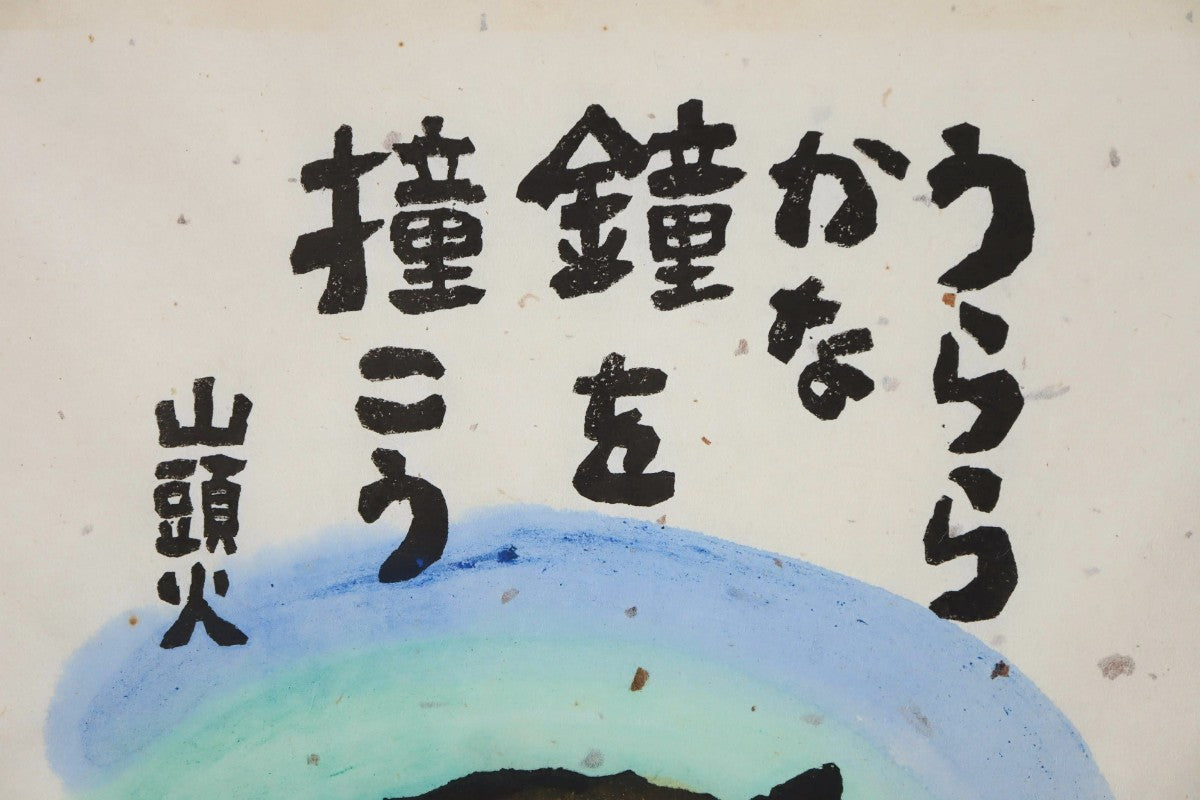 うらら
かな
鐘を
撞こう
山頭火